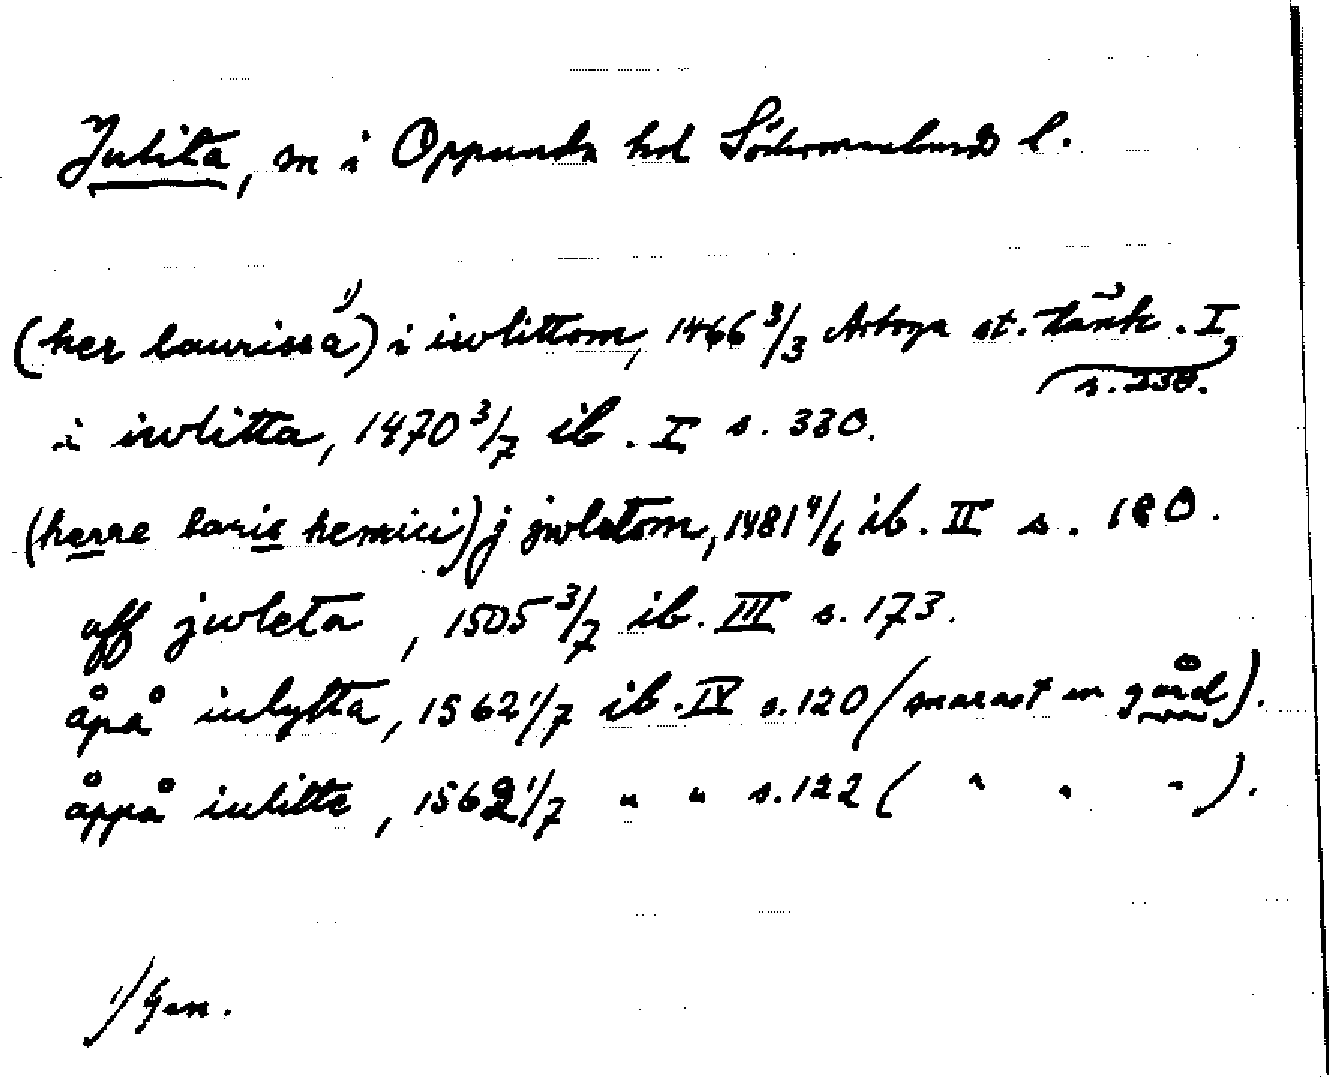 Julita, sn i Oppunda hd Södermanlands l.
(her laurissa¹⁾) i iwlittom, 1466 3/3 Arboga st. tänk. I, s. 230.
i iwlitta, 1470 3/7 ib. I s. 330.
(herre laris henrici) j jwletom, 1481 4/6 ib. II s. 180.
aff jwleta, 1505 3/7 ib. III s. 173.
åpå iulytta, 1562 1/7 ib. IV s. 120 (snarast en gård).
åppå iulitte, 1562 1/7 " " s. 122 ( " " " ).
1) Gen.